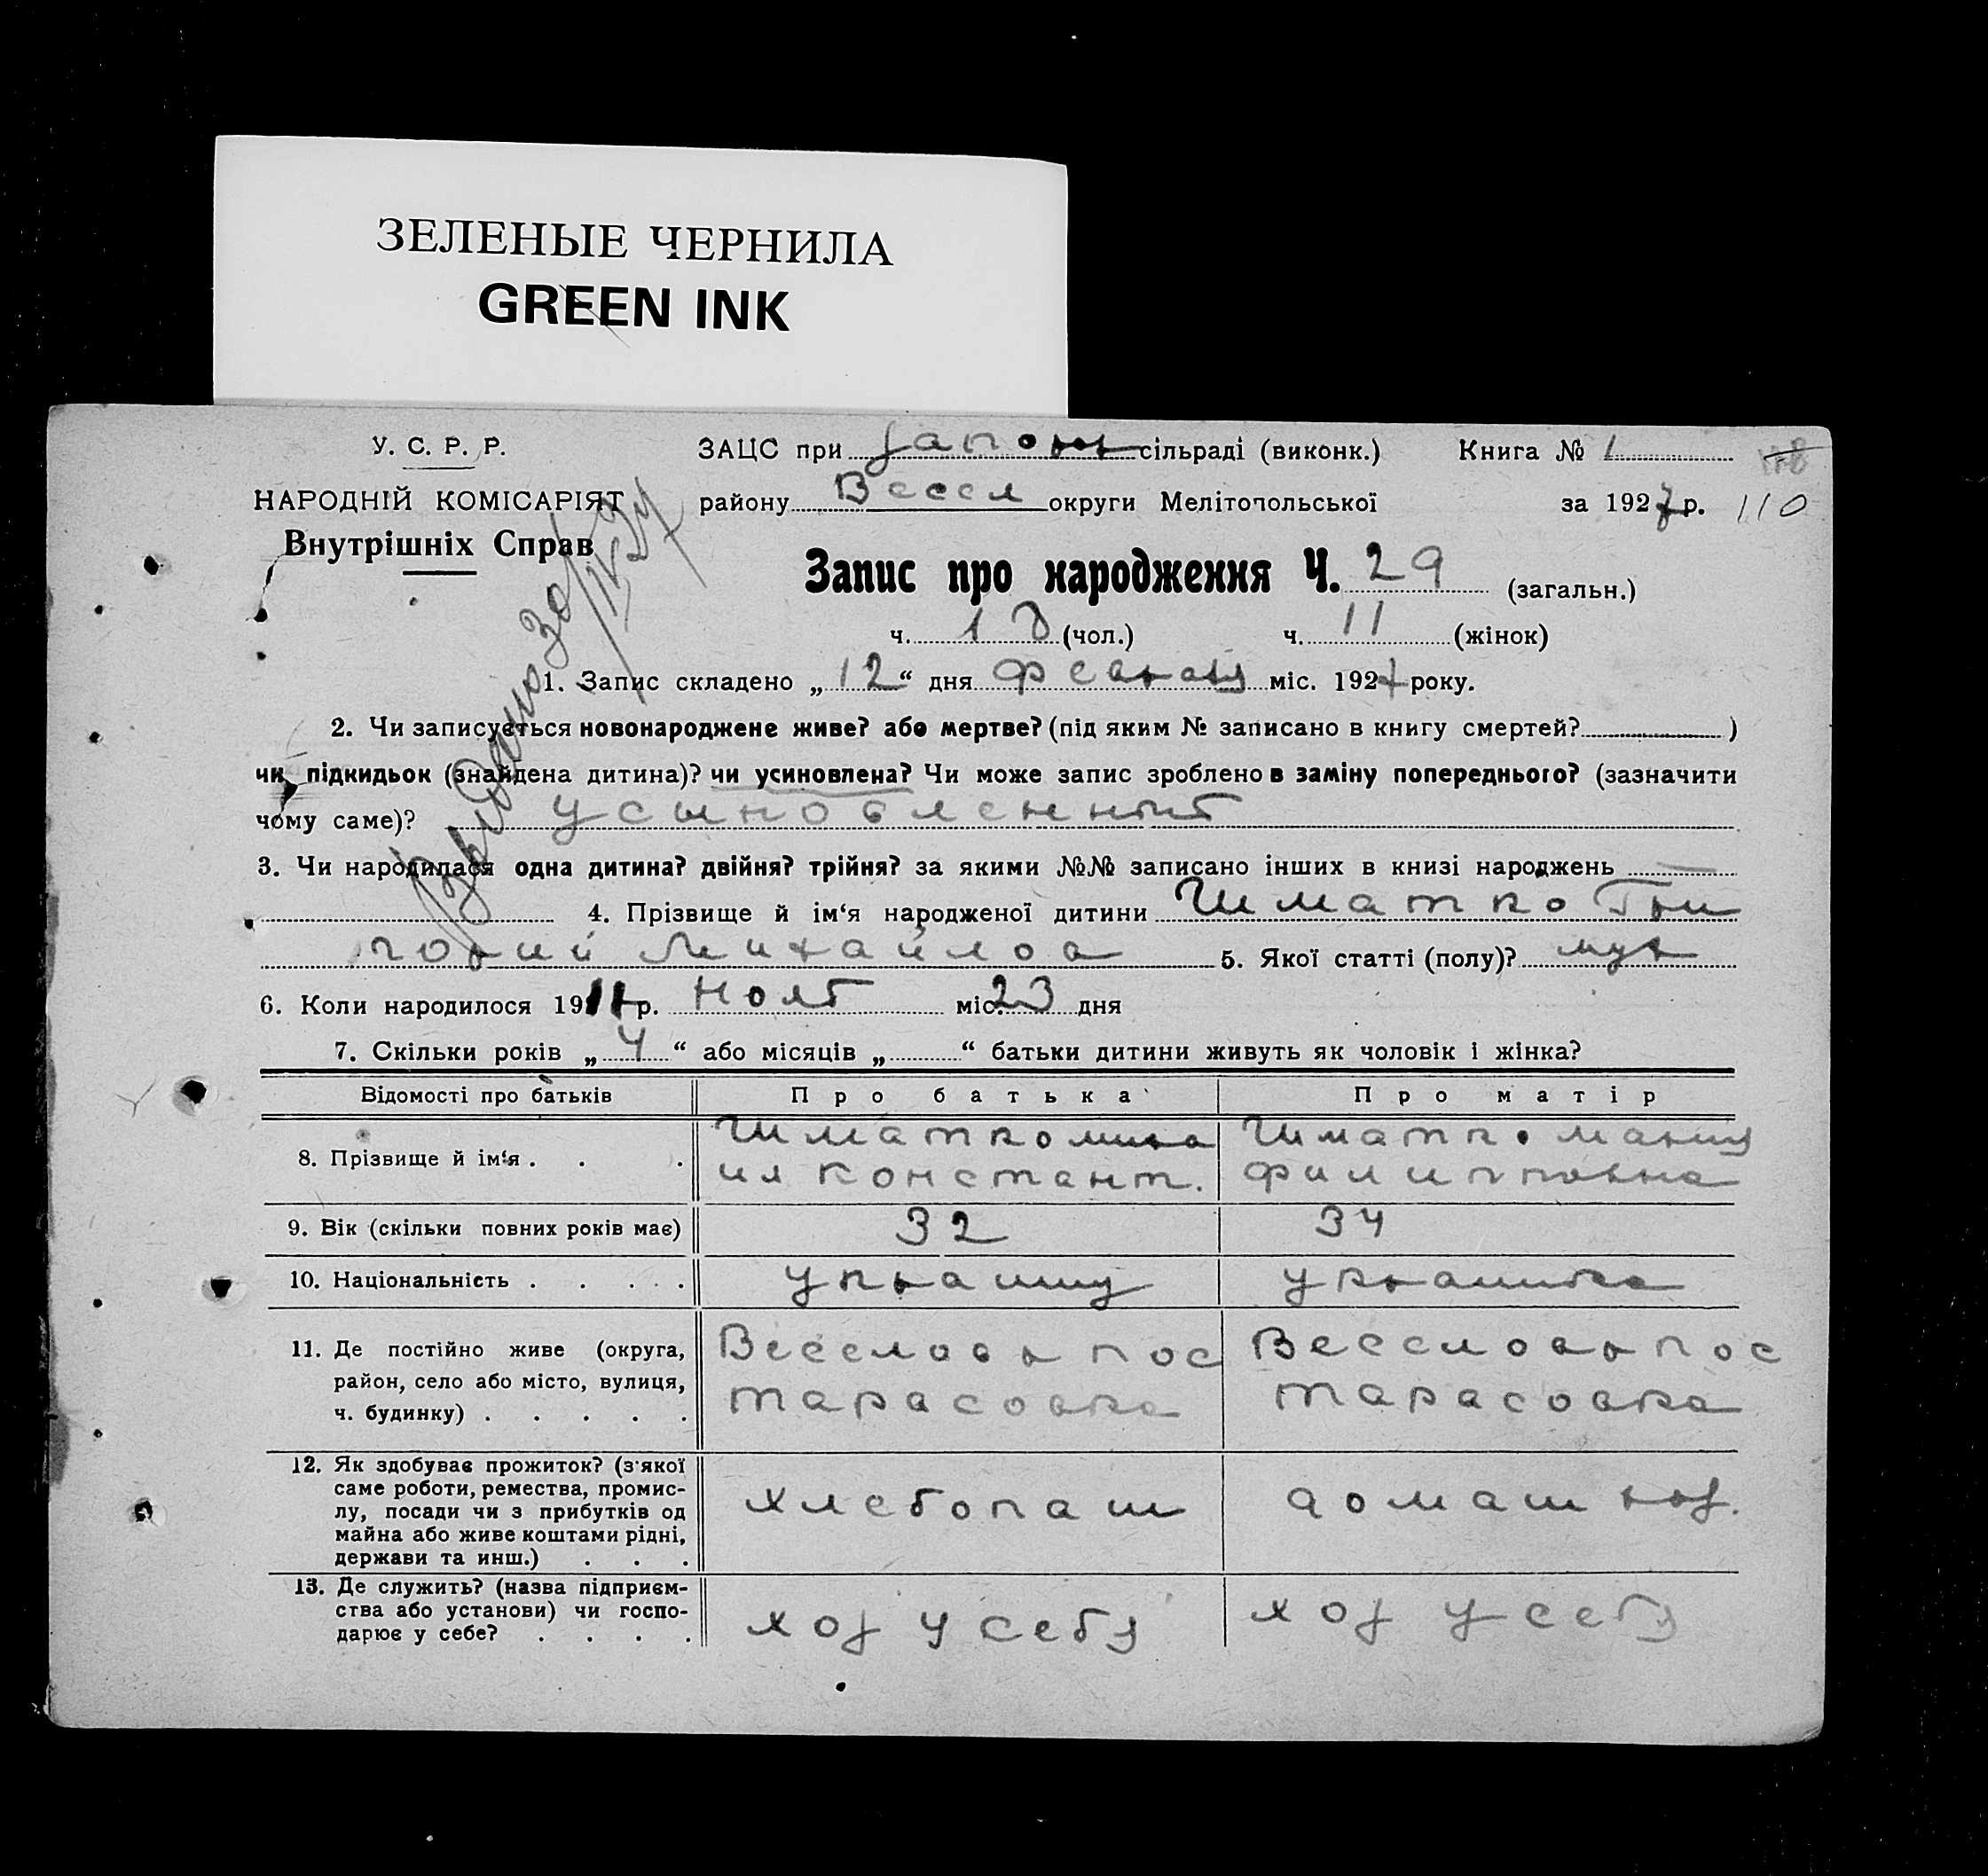 ЗЕЛЕНЫЕ ЧЕРНИЛА
GREEN INK
У. С. Р. Р.
НАРОДНІЙ КОМІСАРІЯТ
Внутрішніх Справ
ЗАЦС при сільраді (виконк.) Книга № 1
району Весел округи Мелітопольської за 1927 р. 110
Запис про народження Ч. 29 (загальн.)
ч. 18 (чол.) ч. 11 (жінок)
1. Запис складено „ 12 “ дня февраля міс. 1927 року.
2. Чи записується новонароджене живе? або мертве? (під яким № записано в книгу смертей? )
чи підкидьок (знайдена дитина)? чи усиновлена? Чи може запис зроблено в заміну попереднього? (зазначити
чому саме)? усыновленный
3. Чи народилася одна дитина? двійня? трійня? за якими №№ записано інших в книзі народжень
4. Прізвище й ім‘я народженої дитини Шматко Гри
горий Михайлов 5. Якої статті (полу)? муж
6. Коли народилося 19 р. нояб міс. 23 дня
7. Скільки років „ 4 “ або місяців „ “ батьки дитини живуть як чоловік і жінка?
Відомості про батьків Про батька Про матір
8. Прізвище й ім‘я . . . Шматко миха Шматко мария
ил Констант. филипповна
9. Вік (скільки повних років має) 32 34
10. Національність . . . . . украинц украинка
11. Де постійно живе (округа, район, село або місто, вулиця, ч. будинку) . . . . . Веселовр пос Веселовр пос
тарасовка тарасовка
12. Як здобуває прожиток? (з‘якої саме роботи, ремества, промислу, посади чи з прибутків од майна або живе коштами рідні, держави та инш.) . . . хлебопаш домаш хоз.
13. Де служить? (назва підприємства або установи) чи господарює у себе? . . . . хоз у себя хоз у себя